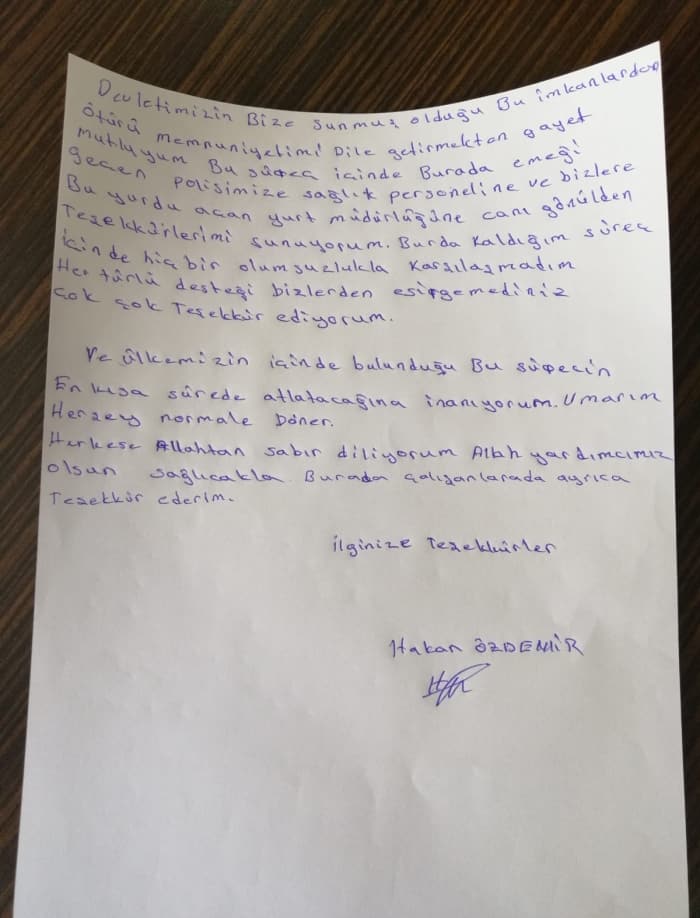 Devletimizin Bize sunmuş olduğu Bu imkanlardan
ötürü memnuniyetimi Dile getirmekten gayet
mutluyum Bu süreç içinde Burada emeği
geçen polisimize sağlık personeline ve bizlere
Bu yurdu açan yurt müdürlüğüne canı gönülden
Teşekkürlerimi sunuyorum. Burda Kaldığım süreç
içinde hiç bir olumsuzlukla Karşılaşmadım
Her türlü desteği bizlerden esirgemediniz
Çok çok Teşekkür ediyorum.
Ve ülkemizin içinde bulunduğu Bu sürecin
En kısa sürede atlatacağına inanıyorum. Umarım
Herşey normale Döner.
Herkese Allahtan sabır diliyorum Allah yardımcımız
olsun sağlıcakla. Burada çalışanlarada ayrıca
Teşekkür ederim.
İlginize Teşekkürler
Hakan ÖZDEMİR